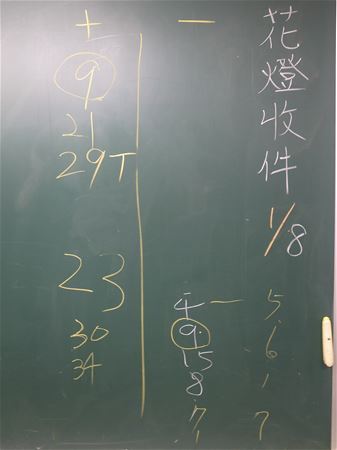 花燈收件 1/8
5.
6
1
7
一
午一
9.
15
8
7
1
+
9
21
29T
23
30
34